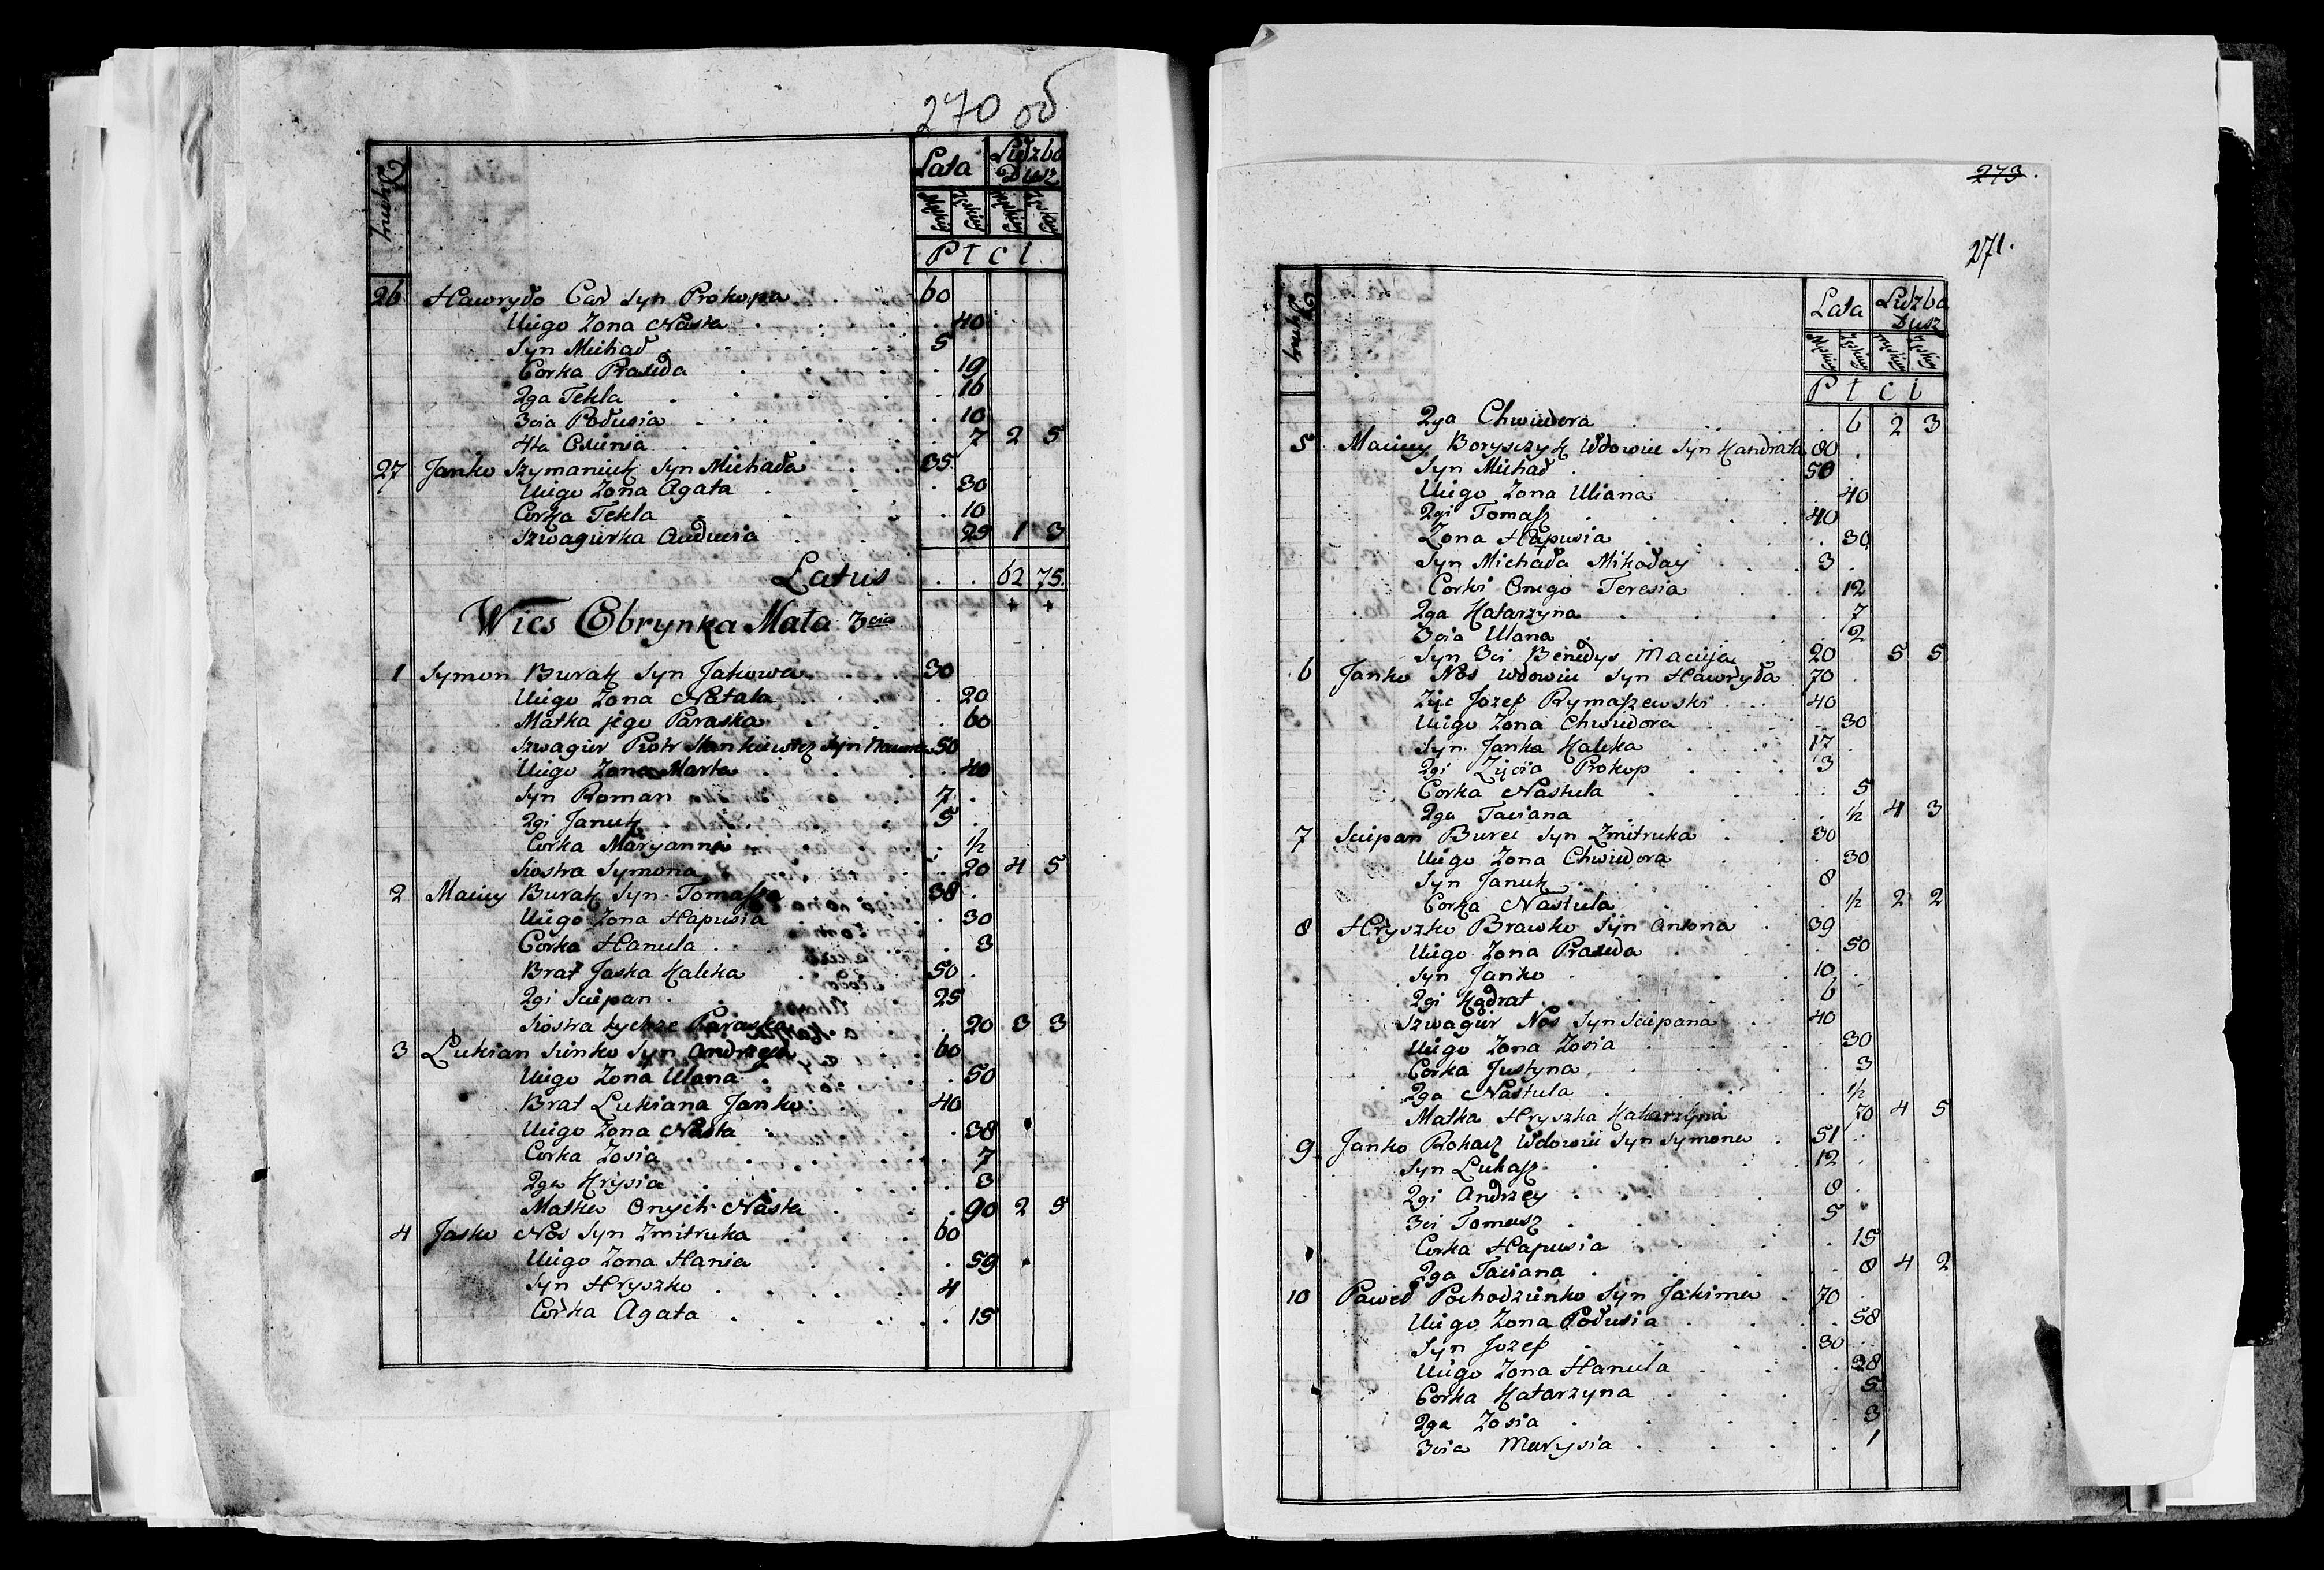 270 об
Dymy
Lata Liczba Dusz
Męzkiey Żeńskiey Męzkiey Żeńskiey
P ł c i
26 Hawryło Car Syn Prokopa 60
U niego Zona Nasta 40
Syn Michał 5
Corka Praxeda 19
2ga Tekla 16
3cia Połusia 10
4ta 7 2 5
27 Janko Szymaniuk Syn Michała 35
U niego Zona Agata 30
Corka Tekla 10
Szwagierka Eudocia 25 1 3
Latus 62 75
Wies Obrynka Mała 3cia
1 Symon Burak Syn Jakowa 30
U niego Zona Natala 20
Matka jego Paraska 60
Szwagier Piotr Stankiewicz Syn Nauma 50
U niego Zona Marta 40
Syn Roman 7
2gi Januk 5
Corka Maryanna ½
Siostra Symona 20 4 5
2 Maciey Burak Syn Tomasza 38
U niego Zona Hapusia 30
Corka Hanula 3
Brat Jaska Kaleka 50
2gi Sciepan 25
Siostra tychze Paraska 20 3 3
3 Lukian Sienko Syn Andrzeja 60
U niego Zona Ulana 50
Brat Lukiana Janko 40
U niego Zona Nasta 38
Corka Zosia 7
2ga Krysia 3
Matka Onych Nasta 90 2 5
4 Jasko Nos Syn Zmitruka 60
U niego Zona Hania 59
Syn Hryszko 4
Corka Agata 15
273.
271.
Dymy
Lata Liczba Dusz
Męzkiey Żeńskiey Męzkiey Żeńskiey
P ł c i
2ga Chwiedora 6 2 3
5 Maciey Boryszyk Wdowiec Syn Kandrata 80
Syn Michał 50
U niego Zona Uliana 40
2gi Tomasz 40
Zona Hapusia 30
Syn Michała Mikołay 3
Corki Onego Teresia 12
2ga Katarzyna 7
3cia Ulana 2
Syn 3ci Benedys Macieja 20 5 5
6 Janko Nos Wdowiec Syn Hawryła 70
Zięc Jozef Rymaszewski 40
U niego Zona Chwiedora 30
Syn Janka Kaleka 17
2gi Zięcia Prokop 3
Corka Nastula 5
2ga Taciana ½ 4 3
7 Sciepan Burec Syn Zmitruka 30
U niego Zona Chwiedora 30
Syn Januk 8
Corka Nastula ½ 2 2
8 Hryszko Brawko Syn Antona 39
U niego Zona Praxeda 50
Syn Janko 10
2gi Kądrat 6
Szwagier Nos Syn Sciepana 40
U niego Zona Zosia 30
Corka Justyna 3
2ga Nastula ½
Matka Hryszka Katarzyna 70 4 5
9 Janko Rokacz Wdowiec Syn Symona 51
Syn Lukasz 12
2gi Andrzey 8
3ci Tomasz 5
Corka Hapusia 15
2ga Taciana 8 4 2
10 Paweł Pochodzienko Syn Jakima 70
U niego Zona Połusia 58
Syn Jozef 30
U niego Zona Hanula 28
Corka Katarzyna 5
2ga Zosia 3
3cia Marysia 1